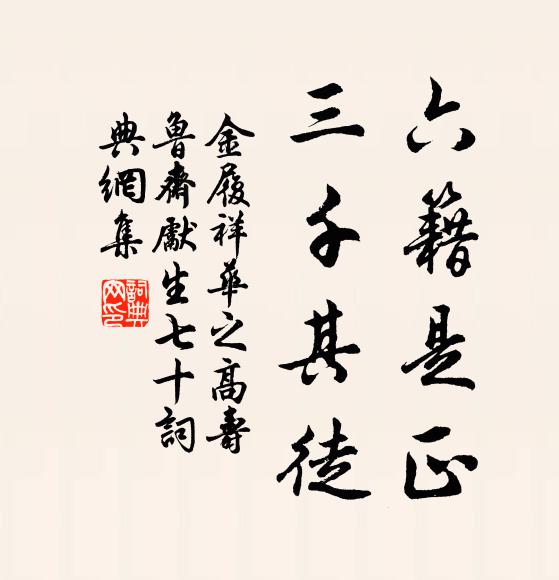 六籍是正
三千其徒
金履祥華之高壽
魯齋獻生七十詞
典網集
詞典網印